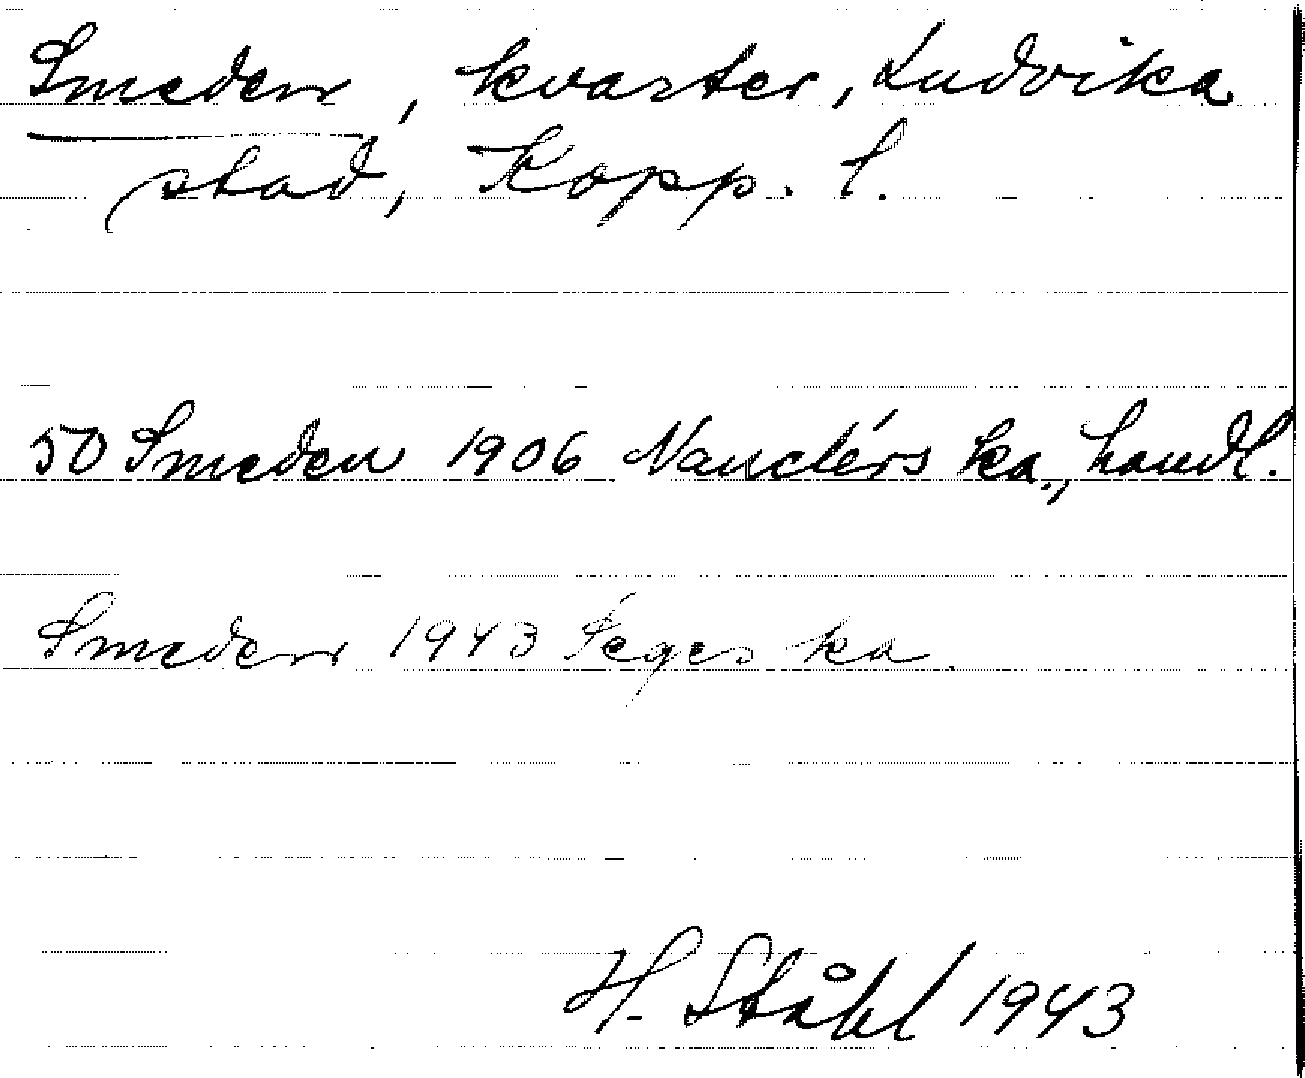 Smeden, kvarter, Ludvika
stad, Kopp. l.
50 Smeden 1906 Nanclérs ka., handl.
Smeden 1943 Seges ka.
H. Ståhl 1943